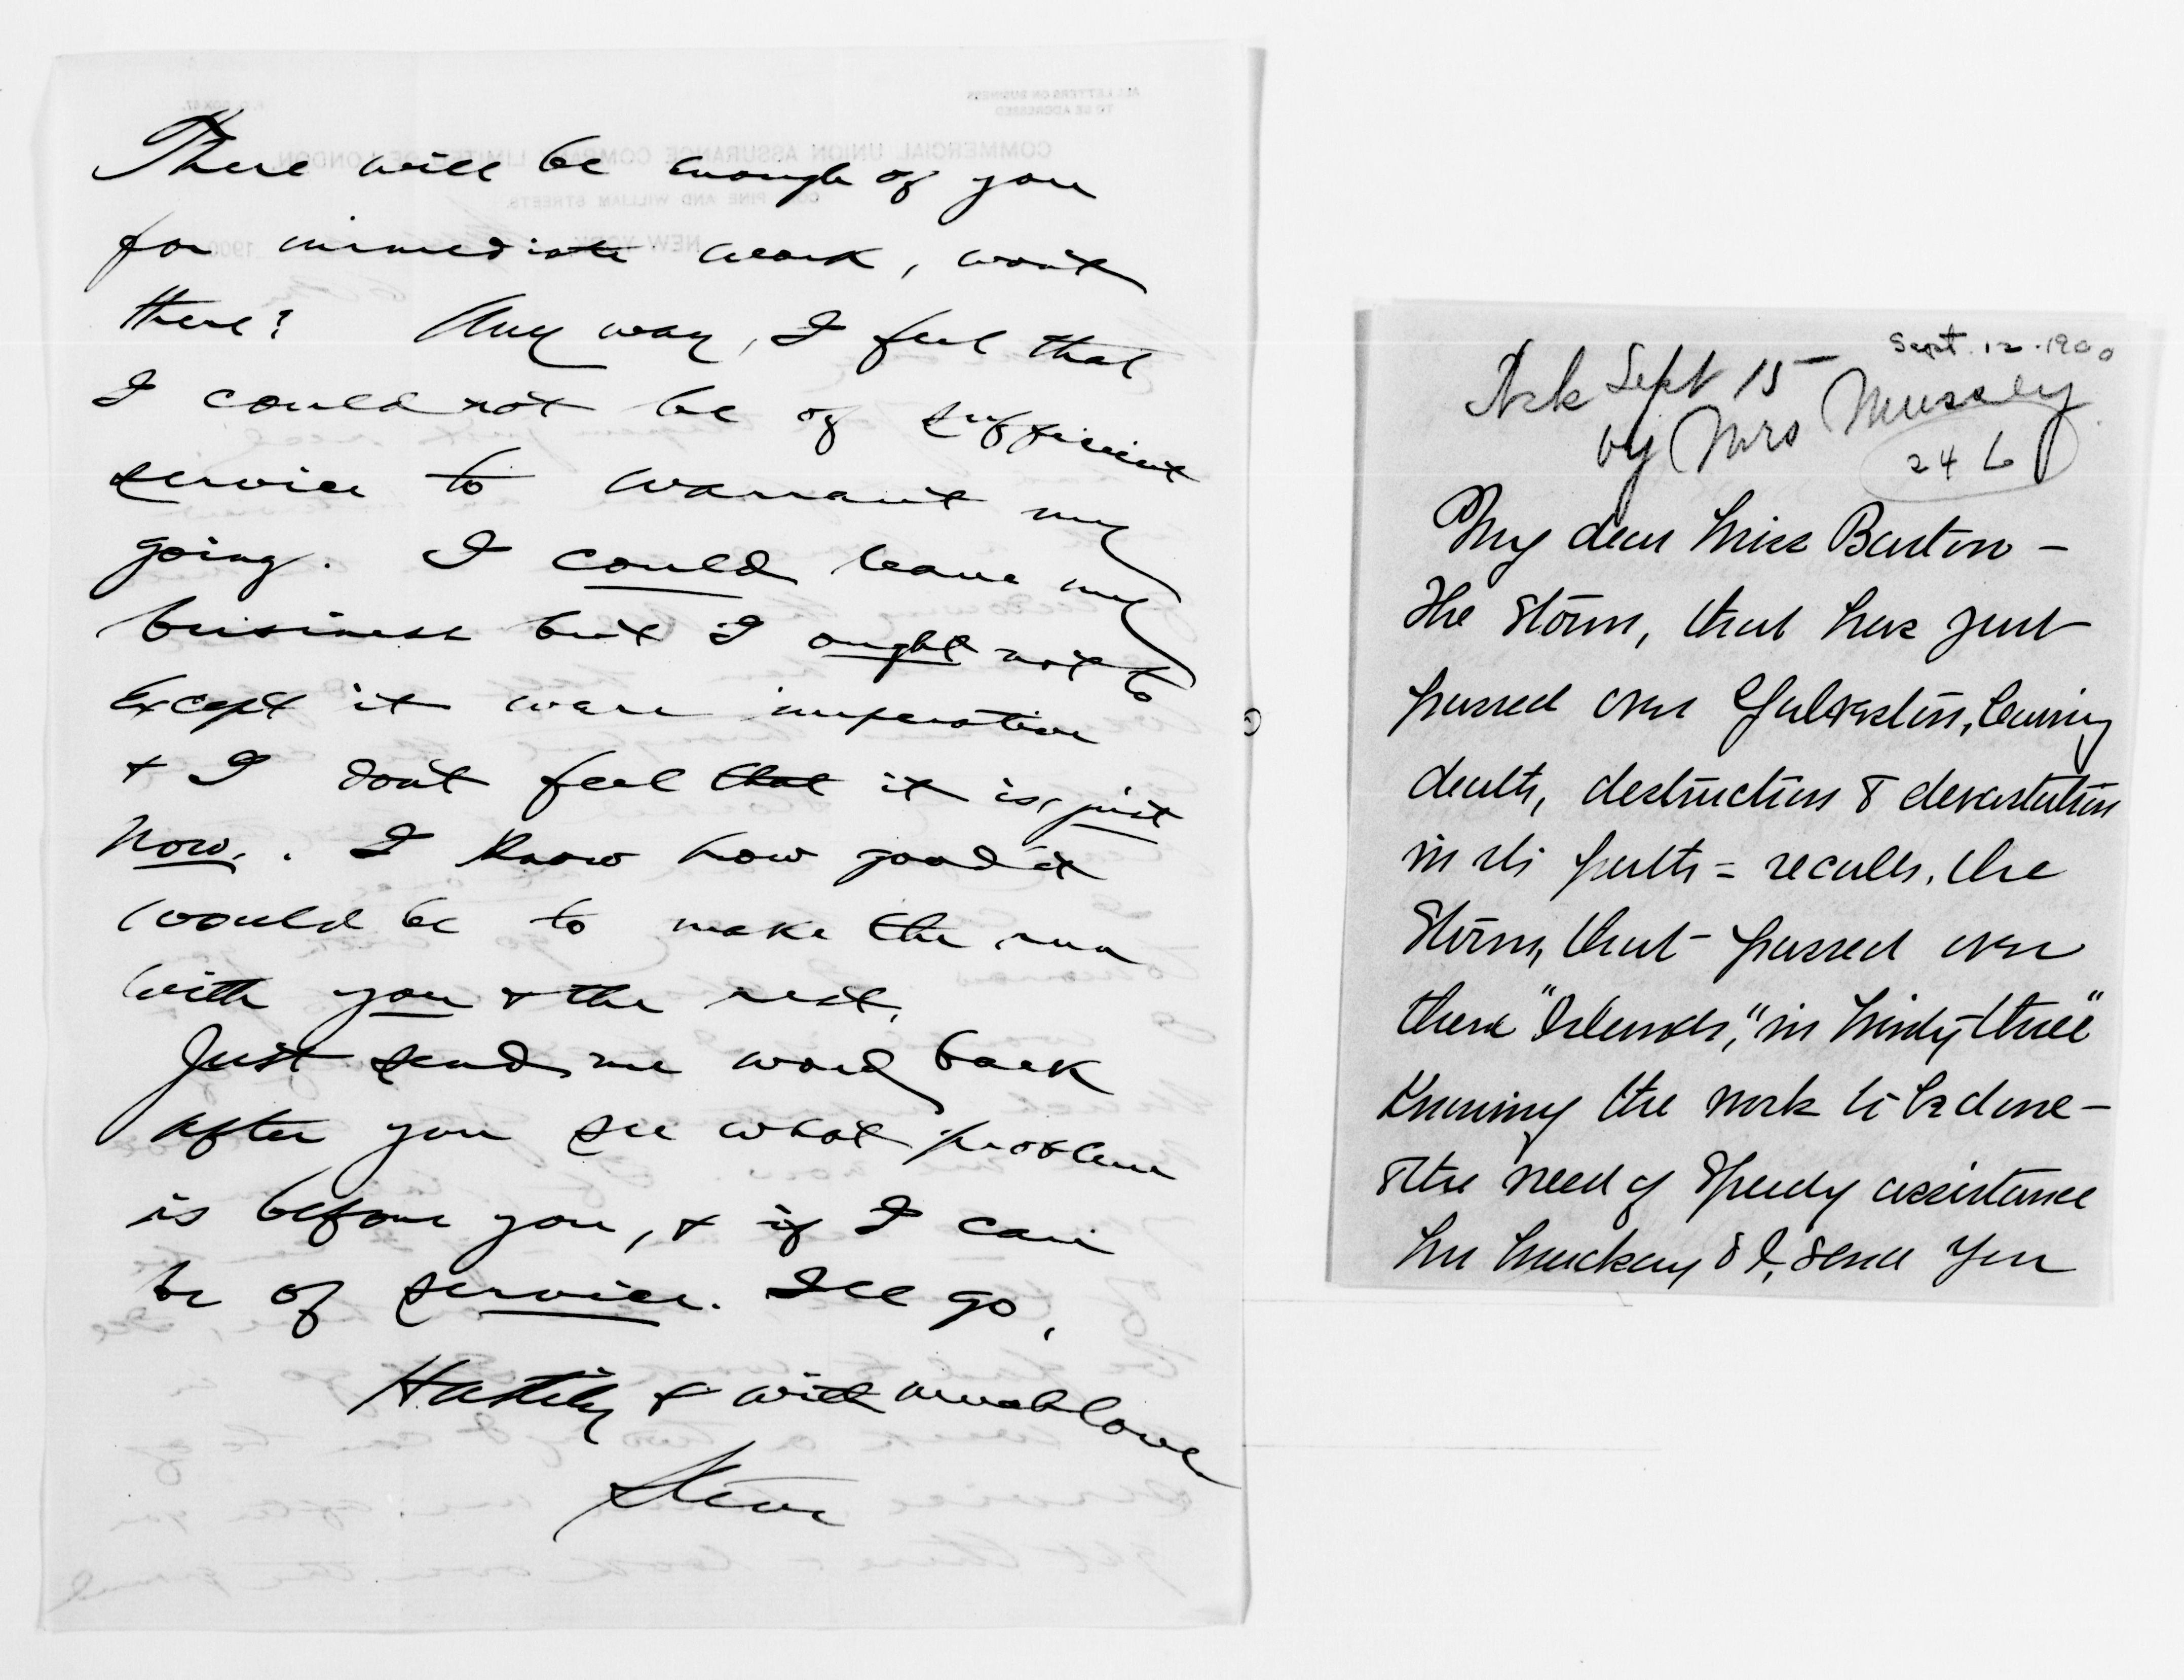 There will be enough of you
for immediate work, wont
there? Any way, I feel that
I could not be of sufficient
service to warrant my
going. I could leave my
business but I ought not to
Except it were imperative
& I dont feel that it is, just
now. I know how good it
would be to make the run
with you & the rest.
Just send me word back
after you see what problem
is before you, & if I can
be of service. Ill go.
Hastily & with much love
Steve
Sept. 12. 1900
Ack Sept 15
by Mrs Mussey
246
My dear Miss Barton -
The storm, that has just
passed over Galveston, leaving
death, destruction & devastation
in its path = recalls, the
Storm, that passed over
these "Islands," in Ninety-three"
Knowing the work to be done -
& the need of speedy assistance
Mr Mackay & I, send you